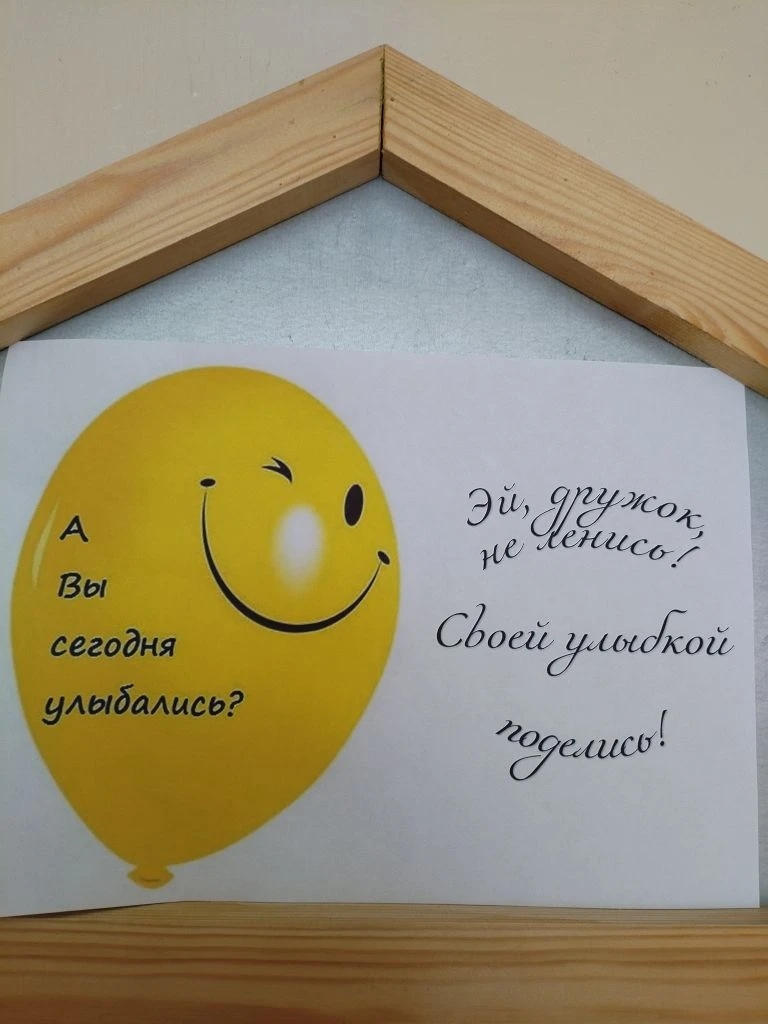 А
Вы
сегодня
улыбались?
Эй, дружок,
не ленись!
Своей улыбкой
поделись!